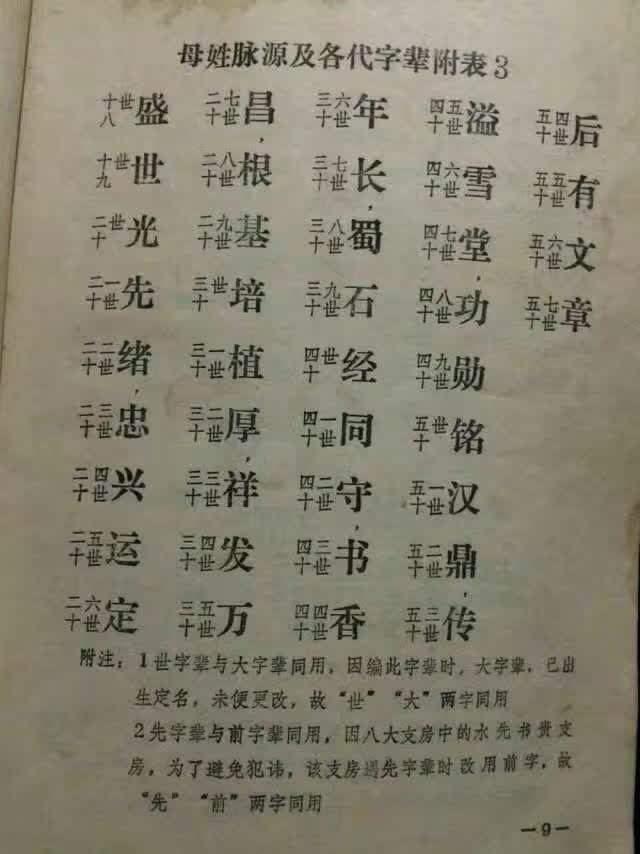 母姓脉源及各代字辈附表3
十八世盛 二十七世昌， 三十六世年 四十五世溢 五十四世后
十九世世 二十八世根 三十七世长， 四十六世雪 五十五世有
二十世光 二十九世基 三十八世蜀 四十七世堂， 五十六世文
二十一世先 三十世培 三十九世石 四十八世功 五十七世章
二十二世绪， 三十一世植 四十世经 四十九世勋
二十三世忠 三十二世厚， 四十一世同 五十世铭
二十四世兴 三十三世祥 四十二世守， 五十一世汉
二十五世运 三十四世发 四十三世书 五十二世鼎，
二十六世定 三十五世万 四十四世香 五十三世传
附注：1世字辈与大字辈同用，因编此字辈时，大字辈，已出
生定名，未便更改，故“世”“大”两字同用
2先字辈与前字辈同用，因八大支房中的水先书贵支
房，为了避免犯讳，该支房遇先字辈时改用前字，故
“先”“前”两字同用
—9—